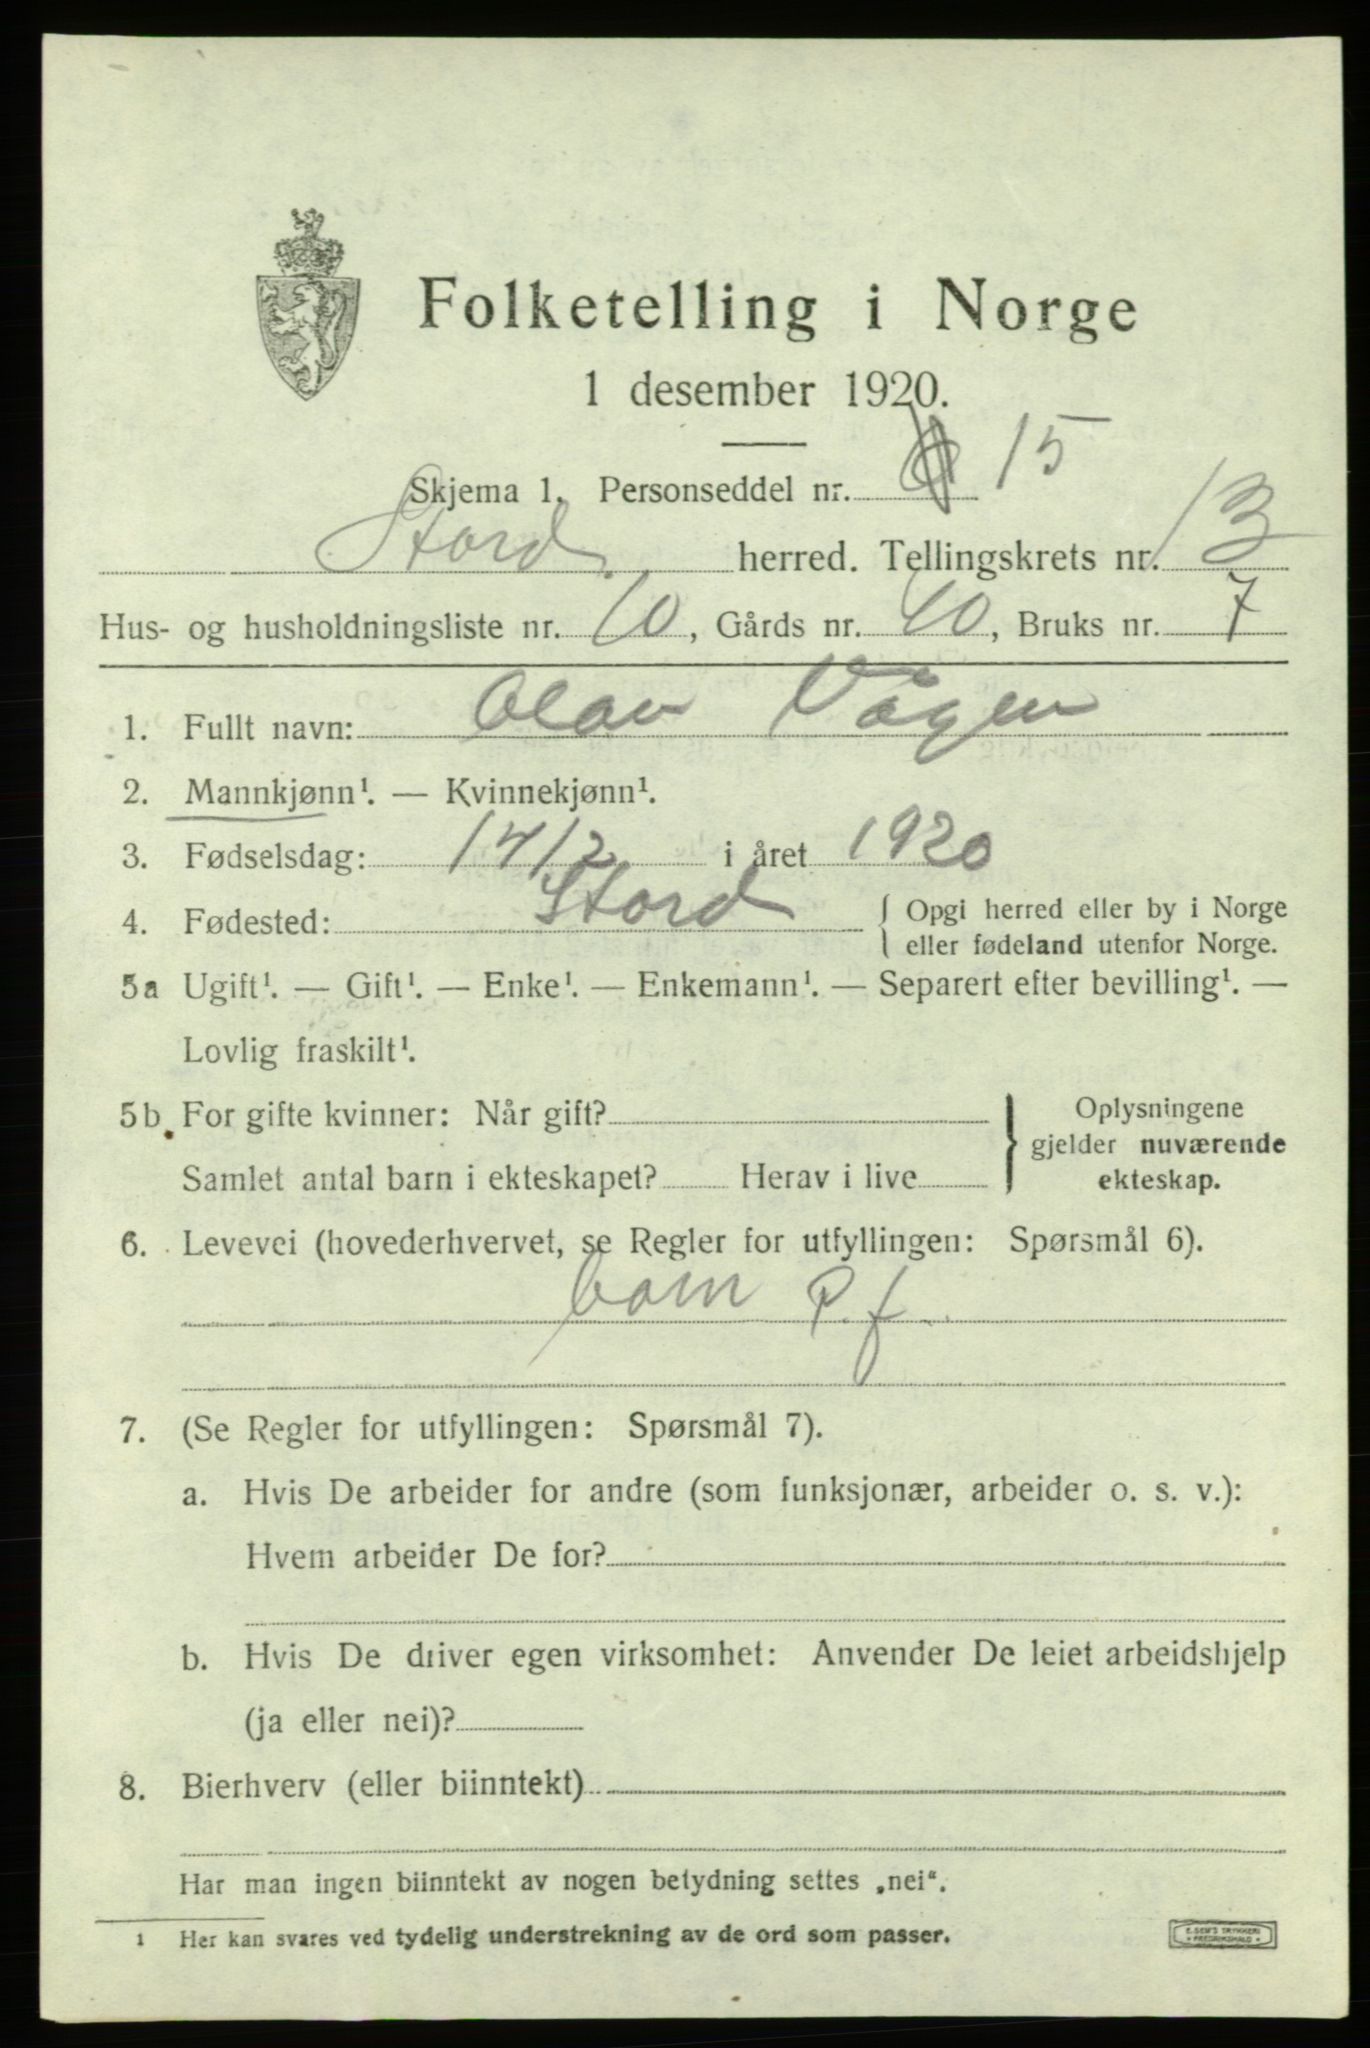 Folketelling i Norge
1 desember 1920.
Skjema 1. Personseddel nr. 15
Stord herred. Tellingskrets nr. 13
Hus- og husholdningsliste nr. 10, Gårds nr. 40, Bruks nr. 7
1. Fullt navn: Olav Vågen
2. Mannkjønn¹. — Kvinnekjønn¹.
3. Fødselsdag: 14/2 i året 1920
4. Fødested: Stord { Opgi herred eller by i Norge
eller fødeland utenfor Norge.
5a Ugift¹. — Gift¹. — Enke¹. — Enkemann¹. — Separert efter bevilling¹. —
Lovlig fraskilt¹.
5b. For gifte kvinner: Når gift? } Oplysningene
gjelder nuværende
Samlet antal barn i ekteskapet? Herav i live
ekteskap.
6. Levevei (hovederhvervet, se Regler for utfyllingen: Spørsmål 6).
barn P. f.
7. (Se Regler for utfyllingen: Spørsmål 7).
a. Hvis De arbeider for andre (som funksjonær, arbeider o. s. v.):
Hvem arbeider De for?
b. Hvis De driver egen virksomhet: Anvender De leiet arbeidshjelp
(ja eller nei)?
8. Bierhverv (eller biinntekt)
Har man ingen biinntekt av nogen betydning settes „nei“.
1 Her kan svares ved tydelig understrekning av de ord som passer.
E. SEM'S TRYKKERI
FREDRIKSHALD